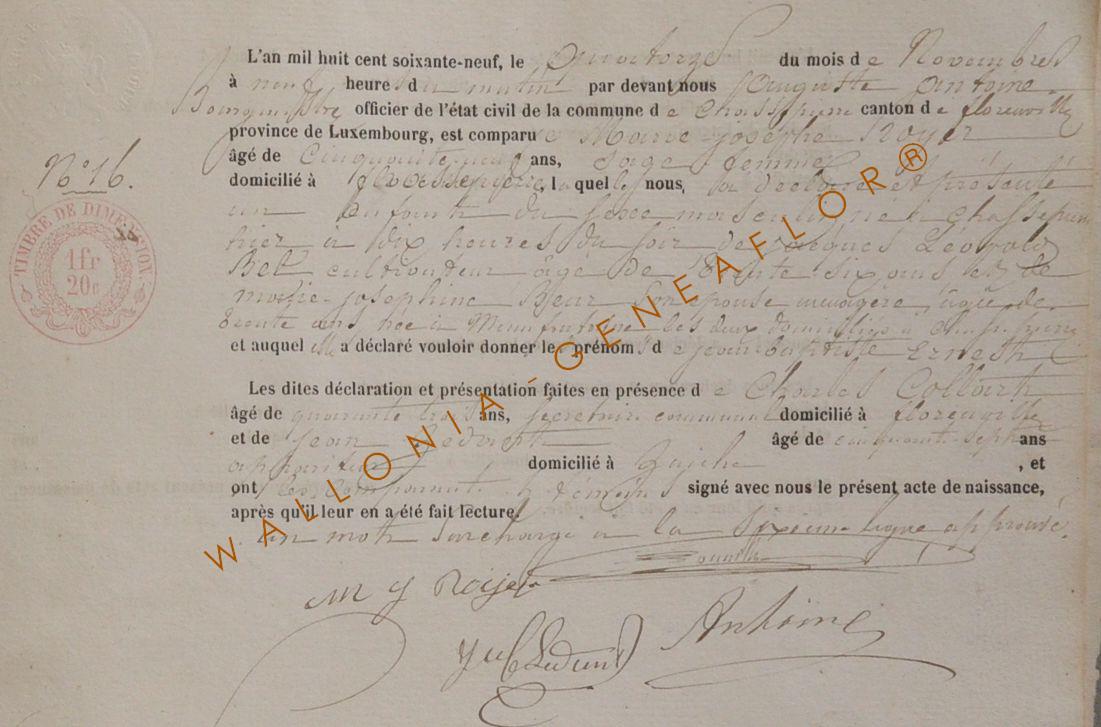 L'an mil huit cent soixante-neuf, le quatorze du mois de Novembre
à neuf heures du matin par devant nous Auguste Antoine
Bourgmestre officier de l'état civil de la commune de Chassepierre canton de florenville
province de Luxembourg, est comparue Marie Josephe Royer
N° 16.
âgé de Cinquante-neuf ans, Sage femme
domicilié à , laquelle nous a déclaré et présenté
un Enfant du Sexe masculin né à Chassepierre
hier à dix heures du soir de Jacques Léopold
cultivateur âgé de trente-six ans et de
marie-josephine Son épouse ménagère âgée de
trente ans née à les deux domiciliés à Chassepierre
et auquel elle a déclaré vouloir donner les prénoms de jean-baptiste Ernest
TIMBRE DE DIMENSION
1fr
20c
Les dites déclaration et présentation faites en présence de Charles Collart
âgé de quarante trois ans, secrétaire communal domicilié à florenville
et de jean âgé de cinquante-sept ans
appariteur domicilié à , et
ont les comparants et témoins signé avec nous le présent acte de naissance,
après qu'il leur en a été fait lecture.
un mot surchargé à la sixième ligne approuvé.
m j Roijer
Antoine
WALLONIA-GENEAFLOR®